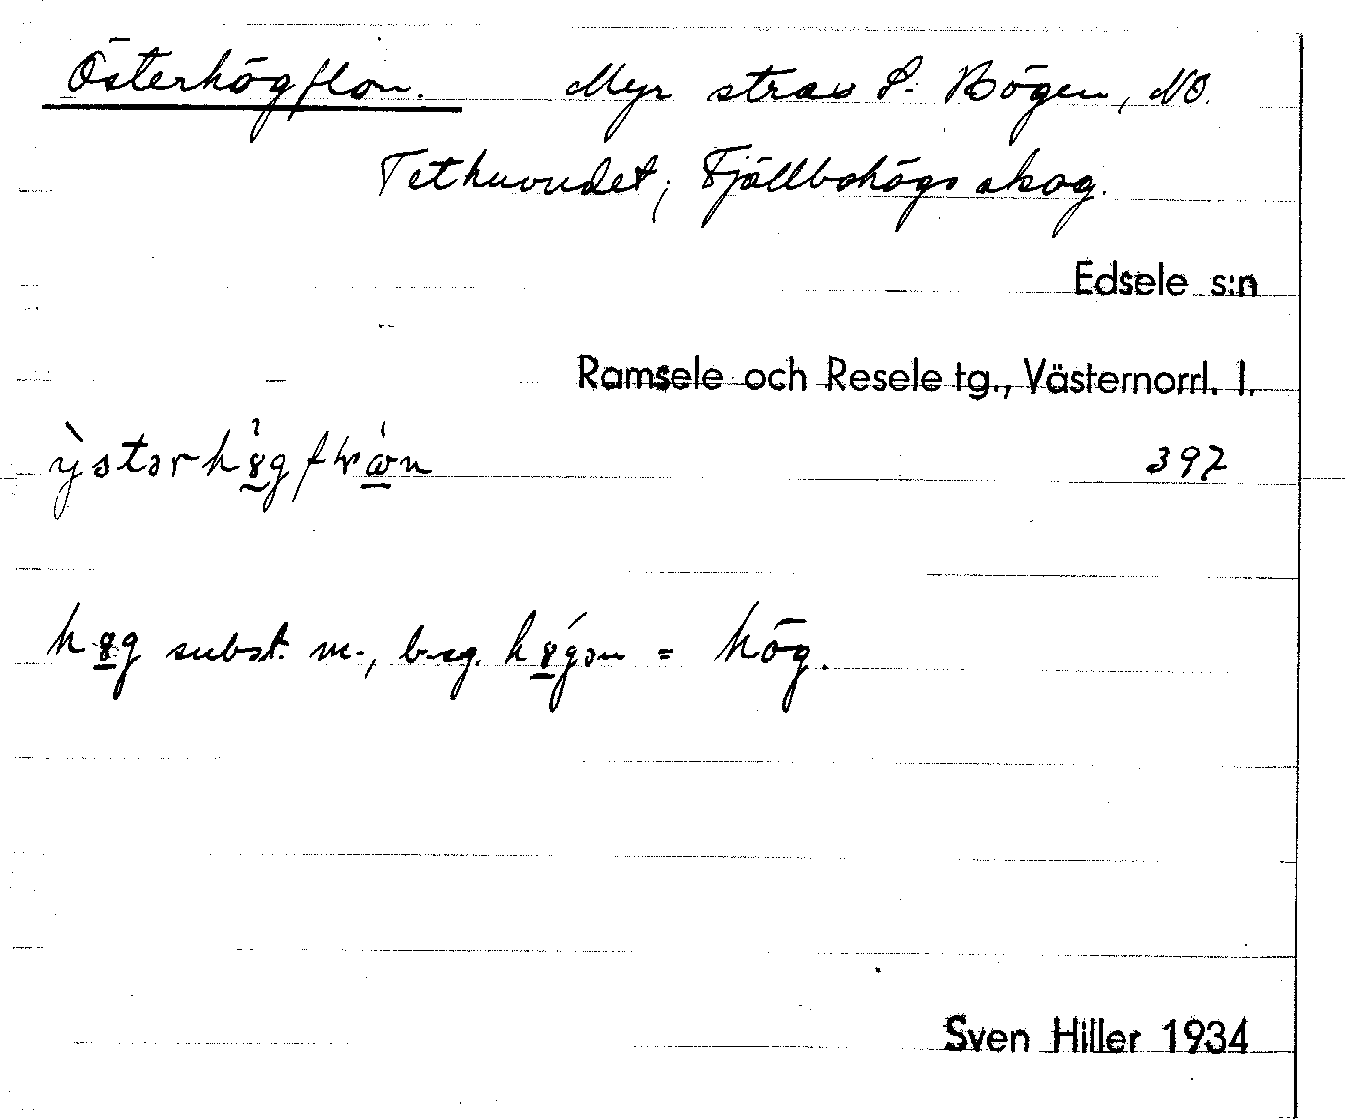 Österhögflon. Myr strax S. Bögen, NO.
Tethuvudet, Fjällbohögs skog.
Edsele s:n
Ramsele och Resele tg., Västernorrl. l.
397
subst. m., b.sg. = hög.
Sven Hiller 1934